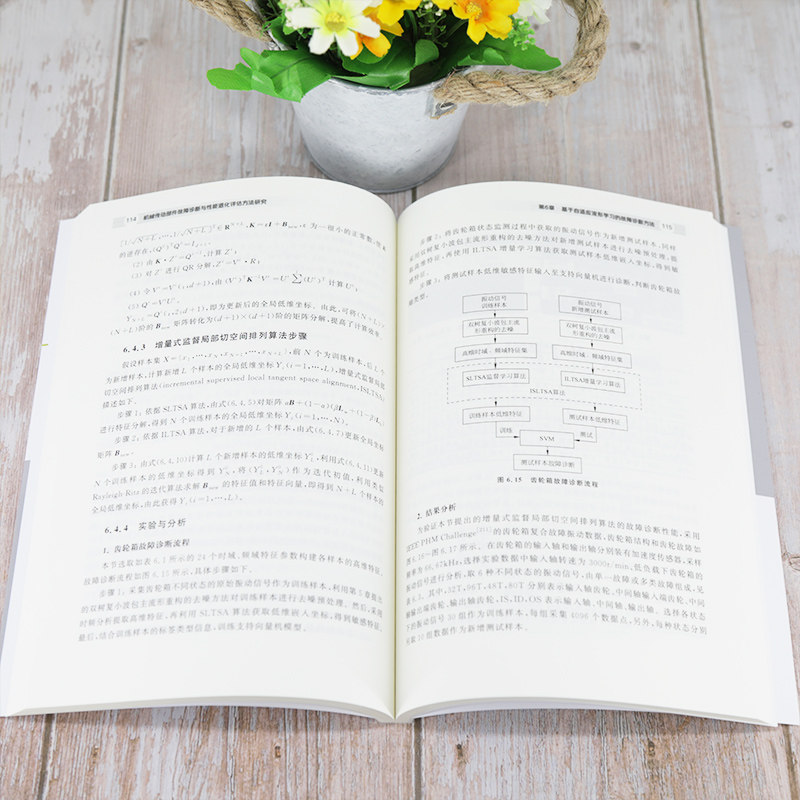 114 机械传动部件故障诊断与性能退化评估方法研究
的逆存在,
(2) 由 K·Z'=Q',计算 Z';
(3) 对 Z' 进行 QR 分解,Z'=V'·R;
(5) Q'=V'U'。
即为更新后的全局低维坐标。由此,可将(N+L)×
(N+L)阶的 矩阵转化为(d+1)×(d+1)阶的矩阵分解,提高了计算效率。
6.4.3 增量式监督局部切空间排列算法步骤
假设样本集 前 N 个为训练样本,后 L 个
为新增样本,计算新增 L 个样本的全局低维坐标 增量式监督局部
切空间排列算法(incremental supervised local tangent space alignment,ISLTSA)
描述如下。
步骤 1:依据 SLTSA 算法,由式(6.4.5)对矩阵
进行特征分解,得到 N 个训练样本的全局低维坐标 Yi(i=1,…,N)。
步骤 2:依据 ILTSA 算法,对于新增的 L 个样本,由式(6.4.7)更新全局坐标
矩阵
步骤 3:由式(6.4.10)计算 L 个新增样本的低维坐标 利用式(6.4.11)更新
N 个训练样本的低维坐标得到 将 作为迭代初值,利用类似
Rayleigh-Ritz 的迭代算法求解 的特征值和特征向量,即得到 N+L 个样本的
全局低维坐标,由此获得 Yi(i=1,…,L)。
6.4.4 实验与分析
1. 齿轮箱故障诊断流程
本节选取如表 6.1 所示的 24 个时域、频域特征参数构建各样本的高维特征,
故障诊断流程如图 6.15 所示,具体步骤如下。
步骤 1:采集齿轮箱不同状态的原始振动信号作为训练样本,利用第 5 章提出
的双树复小波包主流形重构的去噪方法对训练样本进行去噪预处理。然后,采用
时频分析提取高维特征,再利用 SLTSA 算法获取低维嵌入坐标,得到敏感特征。
最后,结合训练样本的标签类型信息,训练支持向量机模型。
第6章 基于自适应流形学习的故障诊断方法 115
步骤 2:将齿轮箱状态监测过程中获取的振动信号作为新增测试样本,同样
采用双树复小波包主流形重构的去噪方法对新增测试样本进行去噪预处理,提
取高维特征,再使用 ILTSA 增量学习算法获取测试样本低维嵌入坐标,得到敏
感特征。
步骤 3:将测试样本低维敏感特征输入至支持向量机进行诊断,判断齿轮箱故
障类型。
振动信号
训练样本
振动信号
新增测试样本
双树复小波包主流
形重构的去噪
双树复小波包主流
形重构的去噪
高维时域、频域特征集
高维时域、频域特征集
SLTSA监督学习算法
ILTSA增量学习算法
ISLTSA算法
训练样本低维特征
测试样本低维特征
训练
SVM
测试
测试样本故障诊断
图 6.15 齿轮箱故障诊断流程
2. 结果分析
为验证本节提出的增量式监督局部切空间排列算法的故障诊断性能,采用
IEEE PHM Challenge 的齿轮箱复合故障振动数据,齿轮箱结构和齿轮故障如
图 6.16~图 6.17 所示。在齿轮箱的输入轴和输出轴分别装有加速度传感器,采样
频率为 66.67kHz,选择实验数据中输入轴转速为 3000r/min,低负载下齿轮箱的
振动信号进行分析,取 6 种不同状态的振动信号,由单一故障或多类故障组成,见
表 6.3。其中,32T、96T、48T、80T 分别表示输入轴齿轮、中间轴输入端齿轮、中间
轴输出端齿轮、输出轴齿轮,IS、ID、OS 表示输入轴、中间轴、输出轴。选择各状态
下的振动信号 30 组作为训练样本,每组采集 4096 个数据点,另外,每种状态分别
组数据作为新增测试样本。